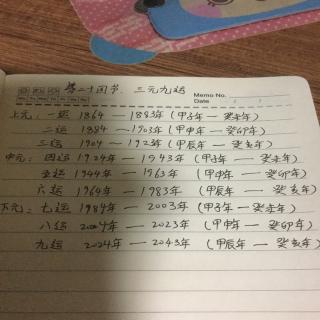 第二十四节. 三元九运
Memo No.
Date
上元: 一运 1864 — 1883年 (甲子年 — 癸未年)
二运 1884 — 1903年 (甲申年 — 癸卯年)
三运 1904 — 1923年 (甲辰年 — 癸亥年)
中元: 四运 1924年 — 1943年 (甲子年 — 癸未年)
五运 1944年 — 1963年 (甲申年 — 癸卯年)
六运 1964年 — 1983年 (甲辰年 — 癸亥年)
下元: 七运 1984年 — 2003年 (甲子年 — 癸未年)
八运 2004年 — 2023年 (甲申年 — 癸卯年)
九运 2024年 — 2043年 (甲辰年 — 癸亥年)